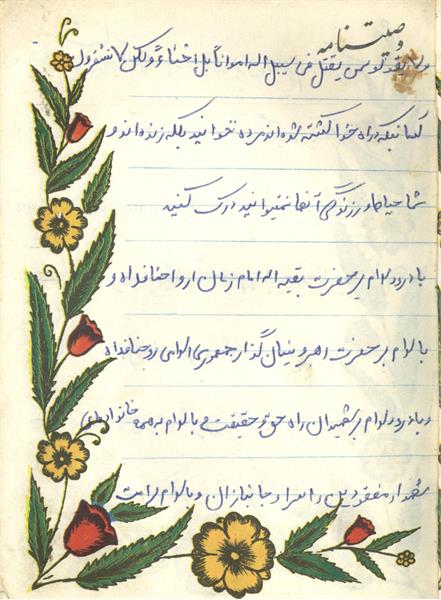 وصیتنامه
و لا تقولو لمن یقتل فی سبیل اله امواتاً بل احیاءٌ و لکن لا تشعرون
کسانیکه در راه خدا کشته شده اند مرده نخوانید بلکه زنده اند و
شما حیات و زندگی آنها نمیتوانید درک کنید
با درود و سلام بر حضرت بقیه اله امام زمان ارواحنا فداه و
با سلام بر حضرت رهبر و بنیان گذار جمهوری اسلامی روحنا فداه
و با درود و سلام بر شهیدان راه حق و حقیقت و با سلام به همه خانواده های
شهدا و مفقودین و اسرا و جانبازان و با سلام بر امت